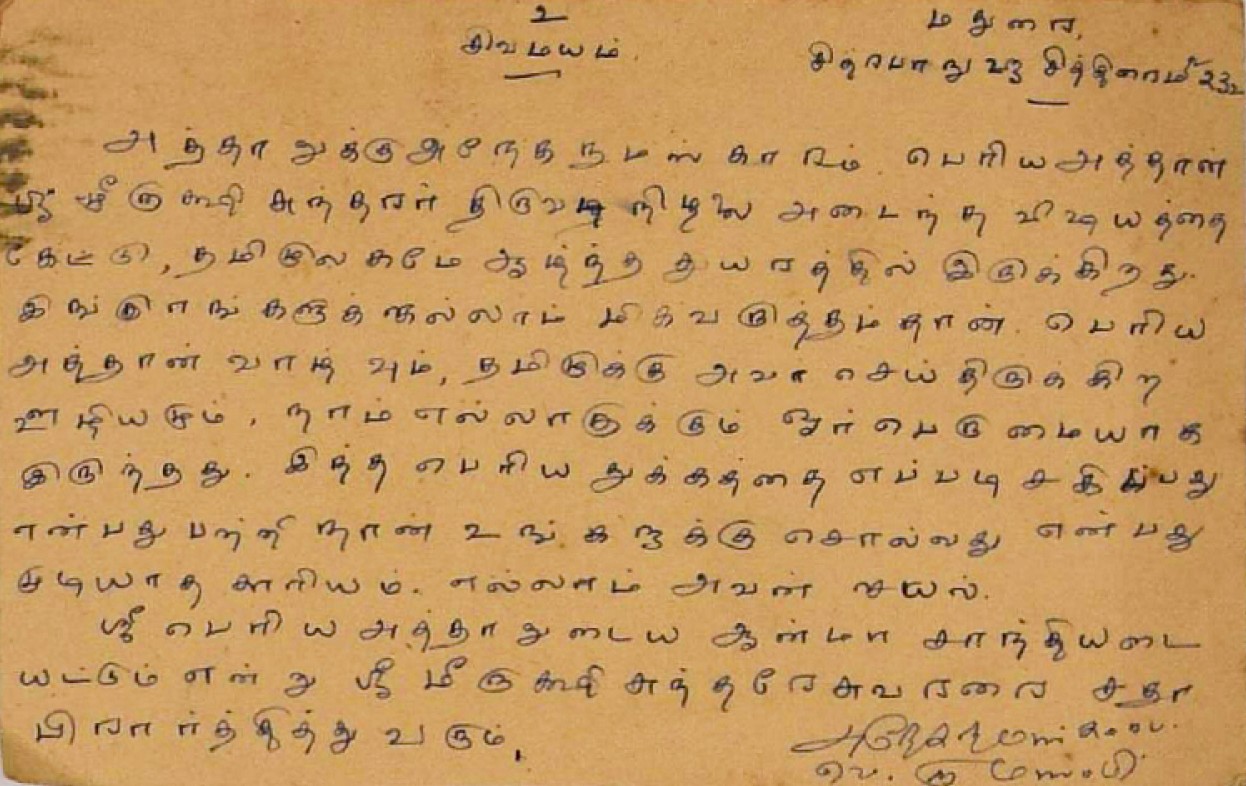 உ
சிவமயம்.
மதுரை,
சித்ரபானு வரு சித்திரைமீ 23உ
அத்தானுக்கு அநேக நமஸ்காரம். பெரிய அத்தான்
ஸ்ரீ மீனாக்ஷி சுந்தரர் திருவடி நிழலை அடைந்த விஷயத்தை
கேட்டு, தமிழுலகமே ஆழ்ந்த துயரத்தில் இருக்கிறது.
இங்குஎங்களுக்கெல்லாம் மிகவருத்தம்தான். பெரிய
அத்தான் வாழ்வும், தமிழுக்கு அவா செய்திருக்கிற
ஊழியமும், நாம் எல்லாருக்கும் ஓர் பெருமையாக
இருந்தது. இந்த பெரிய துக்கத்தை எப்படி சகிப்பது
என்பது பற்றி நான் உங்களுக்கு சொல்வது என்பது
முடியாத காரியம். எல்லாம் அவன் செயல்.
ஸ்ரீ பெரிய அத்தானுடைய ஆன்மா சாந்தியடை
யட்டும் என்று ஸ்ரீ மீனாக்ஷி சுந்தரேசுவரரை சதா
பிரார்த்தித்து வரும்,
அநேக நமஸ்காரம்.